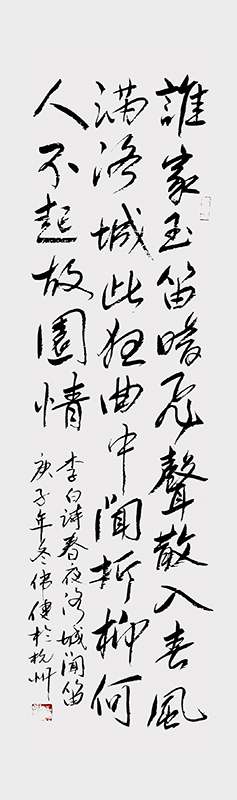 誰家玉笛暗飛聲散入春風
满洛城此夜曲中聞折柳何
人不起故園情
李白詩春夜洛城聞笛
庚子年冬伟於杭州